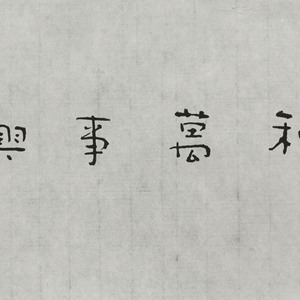 和萬事興